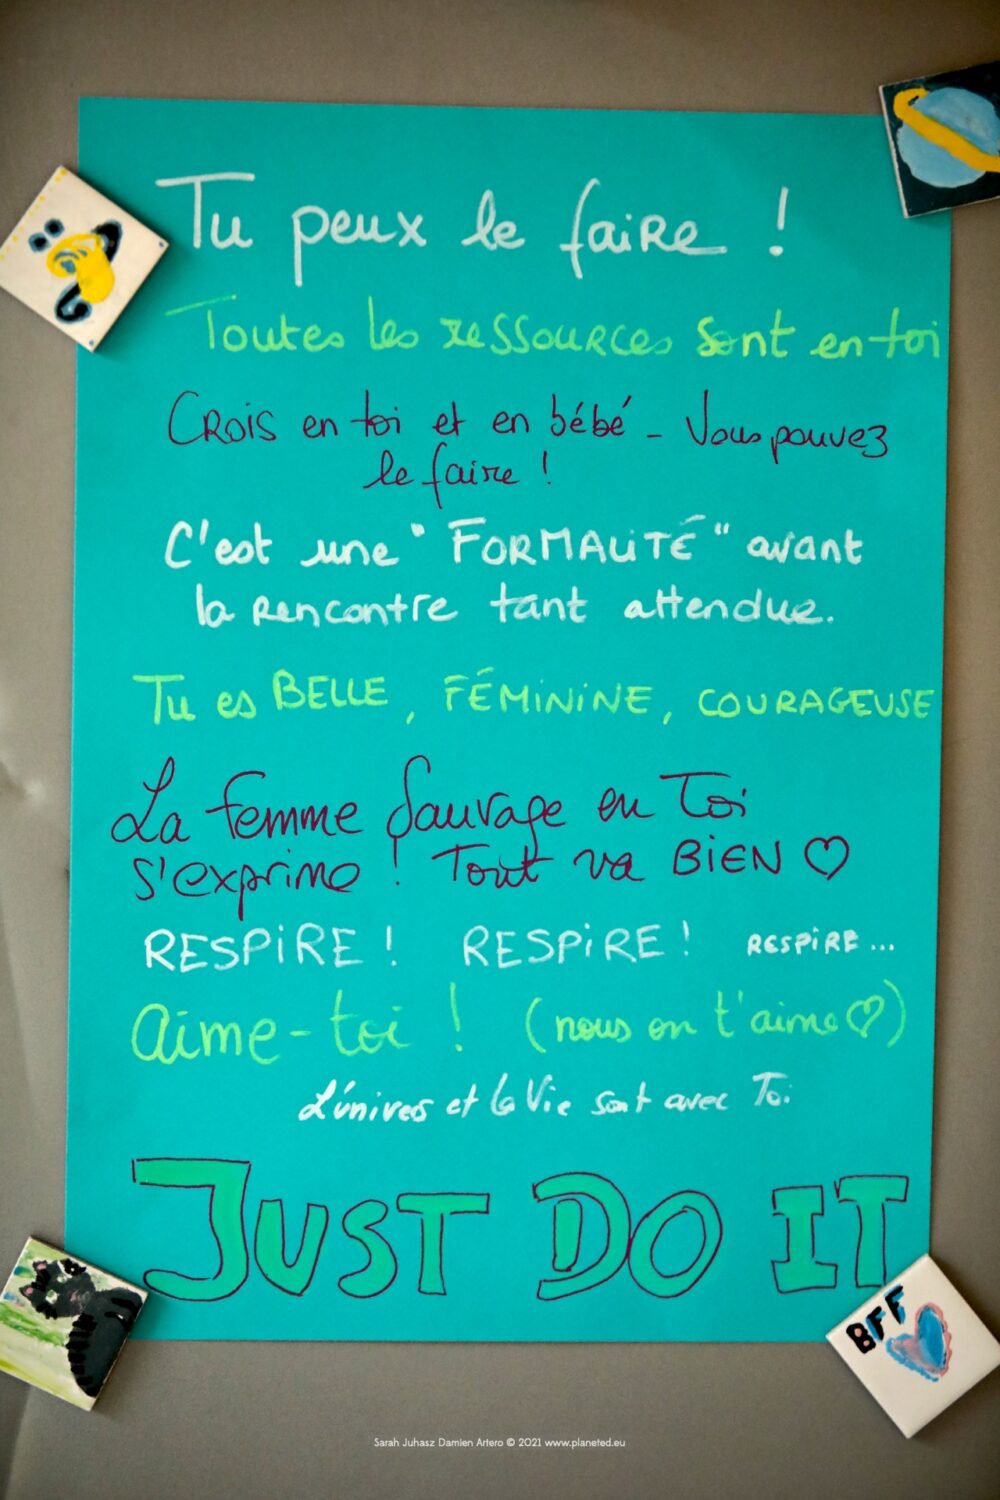 Tu peux le faire !
Toutes les ressources sont en toi
Crois en toi et en bébé - Vous pouvez
le faire !
C'est une "FORMALITÉ" avant
la rencontre tant attendue.
Tu es BELLE, FÉMININE, COURAGEUSE
La femme Sauvage en Toi
s'exprime ! Tout va BIEN ♡
RESPIRE ! RESPIRE ! RESPIRE...
Aime-toi ! (nous on t'aime ♡)
L'univers et la Vie sont avec Toi
JUST DO IT
BFF
Sarah Juhasz Damien Artero © 2021 www.planeted.eu